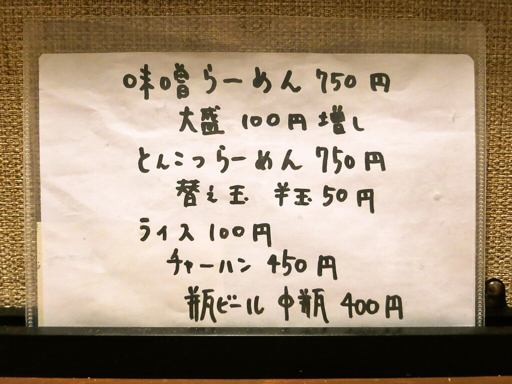 味噌らーめん 750円
大盛 100円増し
とんこつらーめん 750円
替え玉 半玉50円
ライス 100円
チャーハン 450円
瓶ビール 中瓶 400円